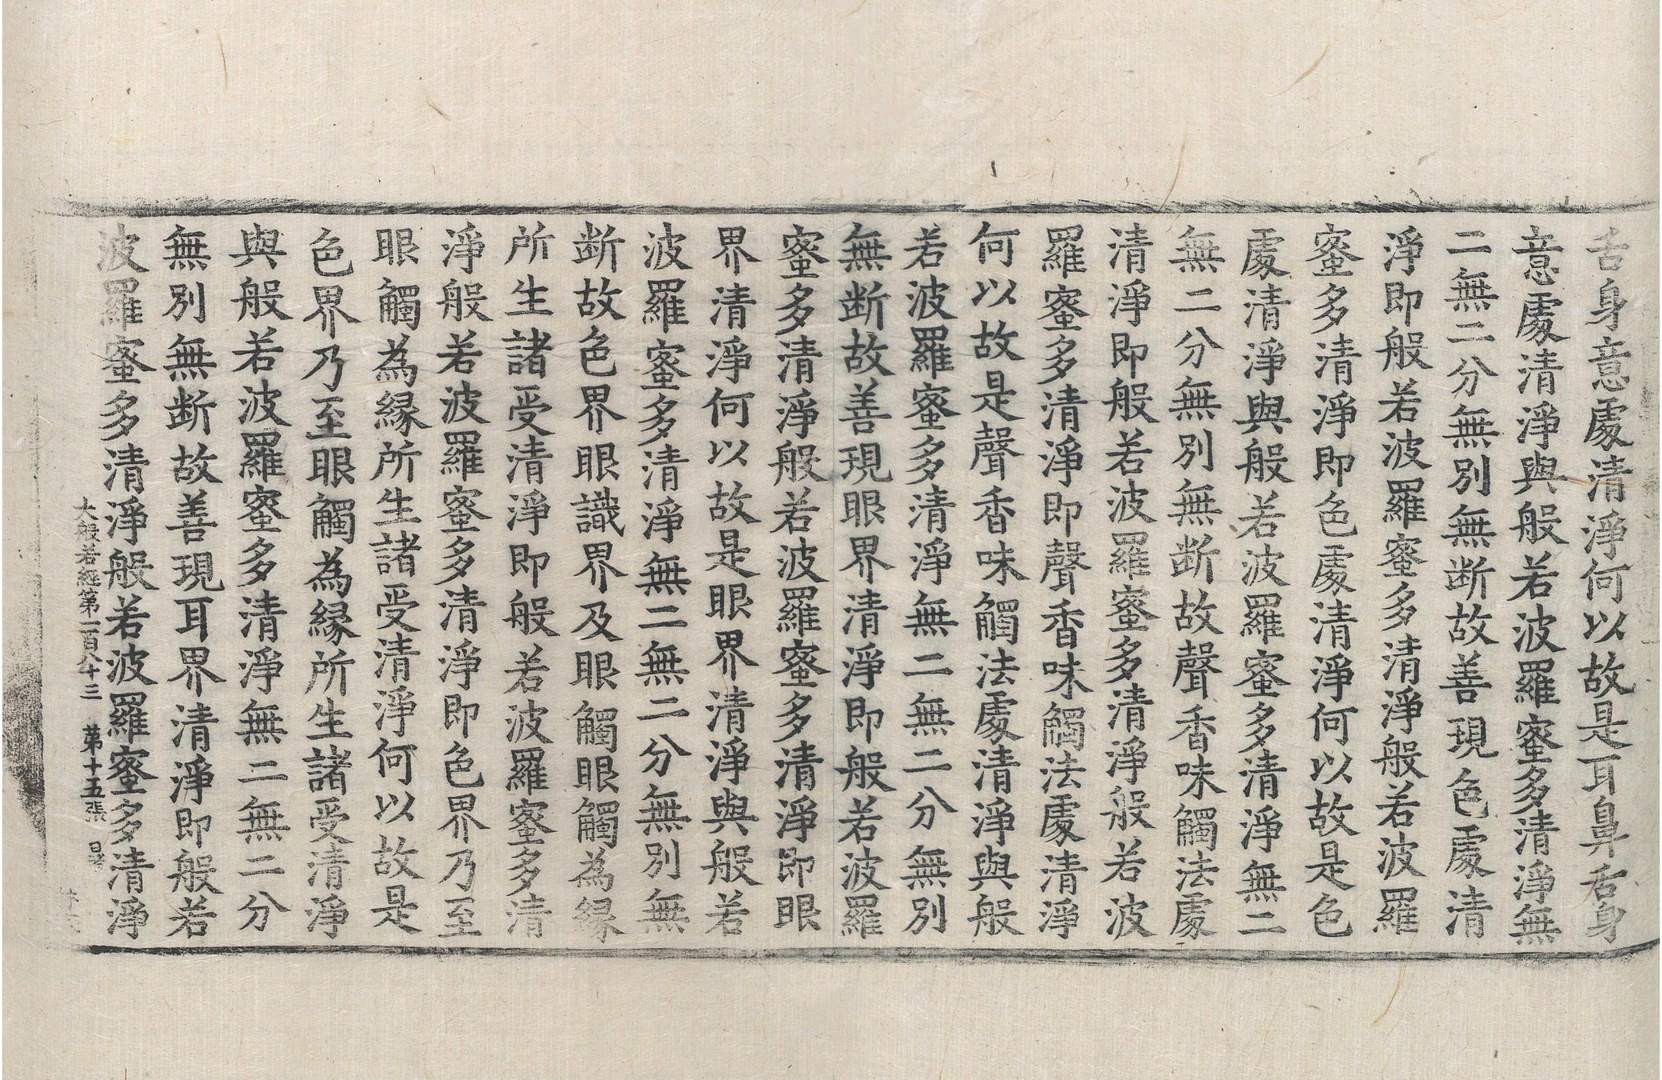 舌身意處清淨何以故是耳鼻舌身
意處清淨與般若波羅蜜多清淨無
二無二分無別無断故善現色處清
淨即般若波羅蜜多清淨般若波羅
蜜多清淨即色處清淨何以故是色
處清淨與般若波羅蜜多清淨無二
無二分無別無断故聲香味觸法處
清淨即般若波羅蜜多清淨般若波
羅蜜多清淨即聲香味觸法處清淨
何以故是聲香味觸法處清淨與般
若波羅蜜多清淨無二無二分無別
無断故善現眼界清淨即般若波羅
蜜多清淨般若波羅蜜多清淨即眼
界清淨何以故是眼界清淨與般若
波羅蜜多清淨無二無二分無別無
断故色界眼識界及眼觸眼觸為縁
所生諸受清淨即般若波羅蜜多清
淨般若波羅蜜多清淨即色界乃至
眼觸為縁所生諸受清淨何以故是
色界乃至眼觸為縁所生諸受清淨
與般若波羅蜜多清淨無二無二分
無別無断故善現耳界清淨即般若
波羅蜜多清淨般若波羅蜜多清淨
大般若經第一百八十三 第十五張